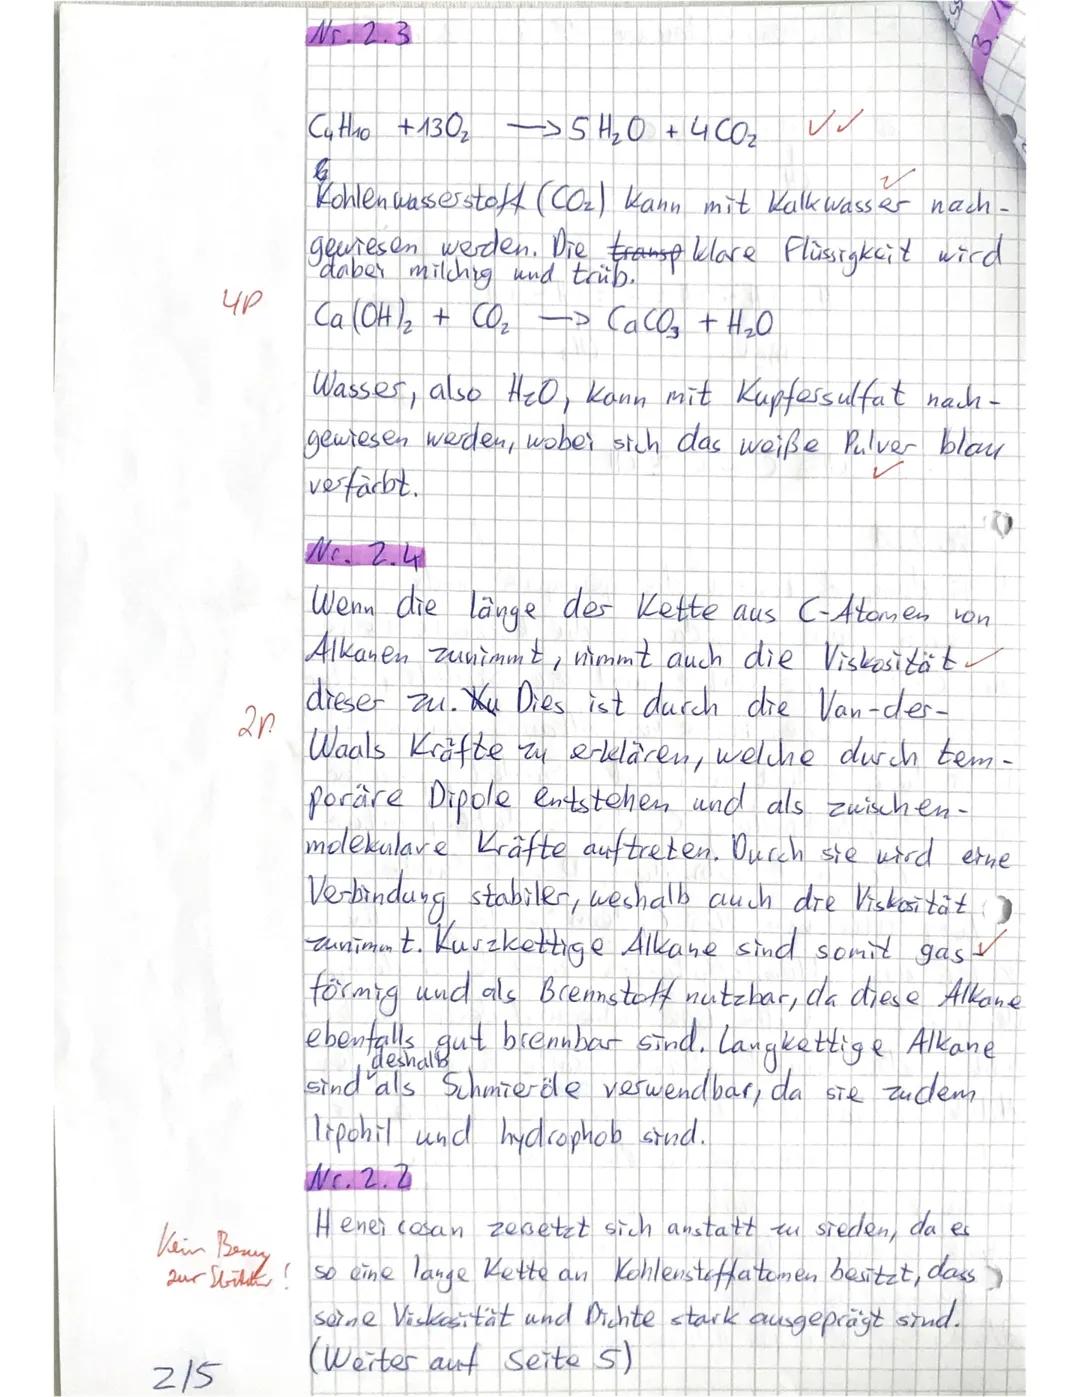 Nr. 2.3
C₄H₁₀ + 13O₂ → 5 H₂O + 4 CO₂ ✓✓
Kohlenwasserstoff (CO₂) kann mit Kalkwasser nach-
gewiesen werden. Die transp klare Flüssigkeit wird
dabei milchig und trüb.
4P
Ca(OH)₂ + CO₂ → CaCO₃ + H₂O
Wasser, also H₂O, kann mit Kupfersulfat nach-
gewiesen werden, wobei sich das weiße Pulver blau
verfärbt.
Nr. 2.4
Wenn die länge der Kette aus C-Atomen von
Alkanen zunimmt, nimmt auch die Viskosität ✓
dieser zu. Dies ist durch die Van-der-
2P.
Waals Kräfte zu erklären, welche durch tem-
poräre Dipole entstehen und als zwischen-
molekulare Kräfte auftreten. Durch sie wird eine
Verbindung stabiler, weshalb auch die Viskosität
zunimmt. Kurzkettige Alkane sind somit gas ✓
förmig und als Brennstoff nutzbar, da diese Alkane
ebenfalls gut brennbar sind. Langkettige Alkane
sind deshalb als Schmieröle verwendbar, da sie zudem
lipohil und hydrophob sind.
Nr. 2.2
Heneicosan zersetzt sich anstatt zu sieden, da es
Kein Bezug
zur !
so eine lange Kette an Kohlenstoffatomen besitzt, dass
seine Viskosität und Dichte stark ausgeprägt sind.
(Weiter auf Seite 5)
2/5